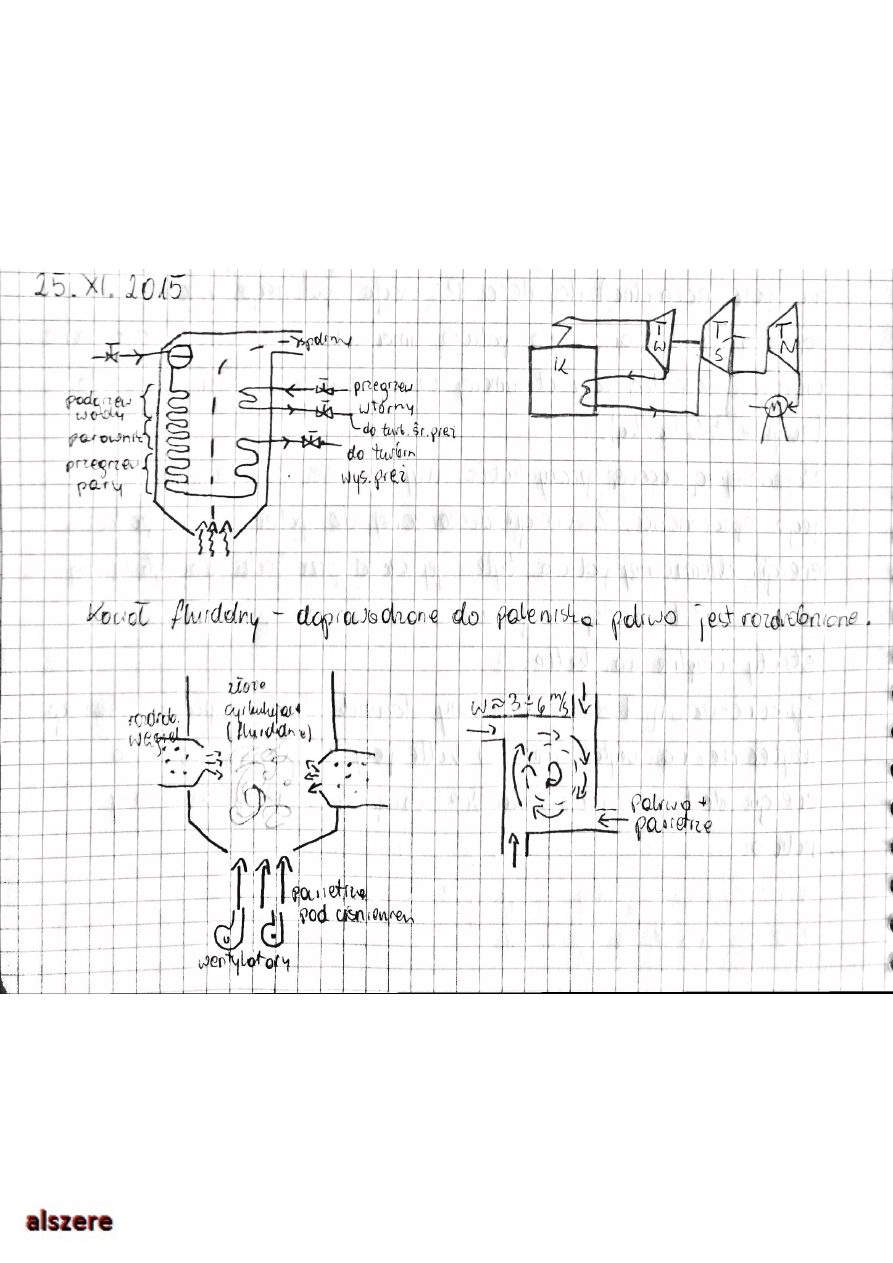 25. XI. 2015
spaliny
podgrzew
wody
parownik
przegrzew
pary
przegrzew
wtórny
do turb. śr. pręż
do turbin
wys. pręż
K
TW
TS
TN
Kocioł fluidalny - doprowadzone do paleniska paliwo jest rozdrobnione.
rozdrob.
węgiel
złoże
cyrkulujące
(fluidalne)
powietrze
pod ciśnieniem
wentylatory
w ≈ 3 ÷ 6 m/s
paliwo +
powietrze
alszere